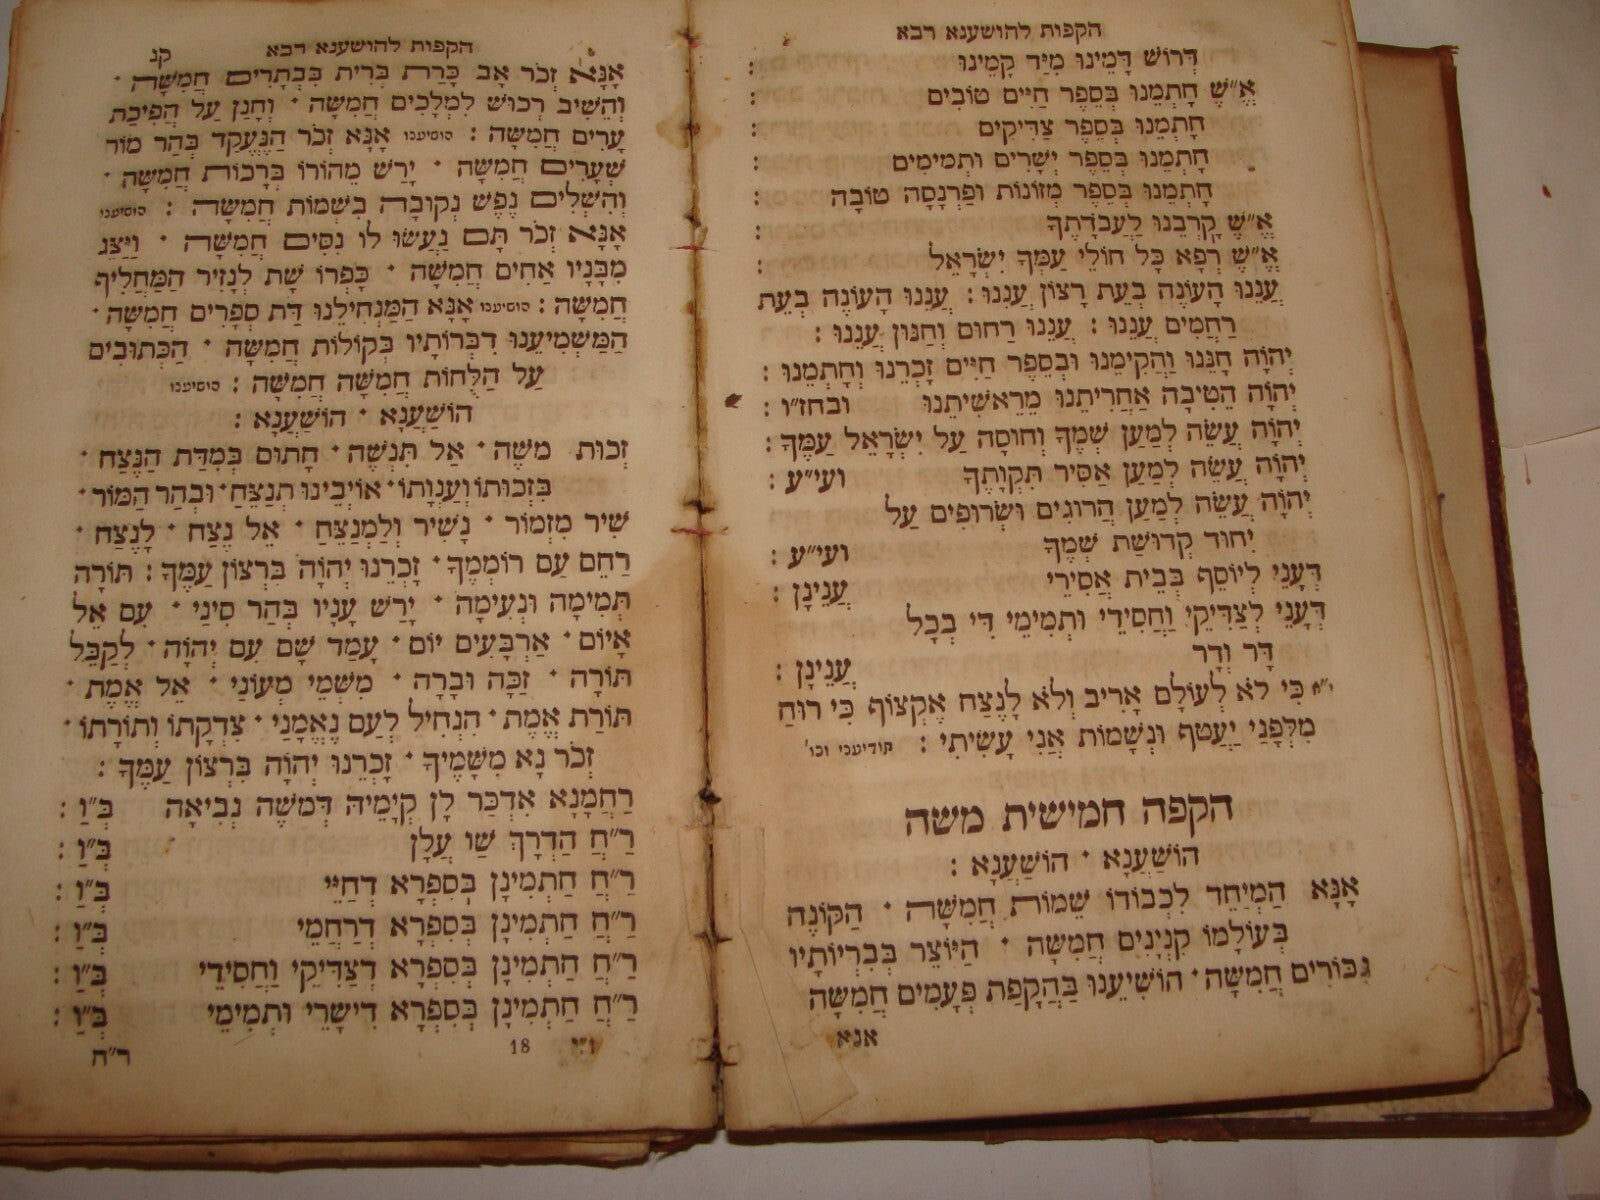 הקפות להושענא רבא
דְּרוֹשׁ דָּמֵינוּ מִיַּד קָמֵינוּ :
אֱ״שֶׁ חָתְמֵנוּ בְּסֵפֶר חַיִּים טוֹבִים :
חָתְמֵנוּ בְּסֵפֶר צַדִּיקִים :
חָתְמֵנוּ בְּסֵפֶר יְשָׁרִים וּתְמִימִים :
חָתְמֵנוּ בְּסֵפֶר מְזוֹנוֹת וּפַרְנָסָה טוֹבָה :
אֱ״שֶׁ קָרְבֵנוּ לַעֲבֹדָתֶךָ :
אֱ״שֶׁ רְפָא כָּל חוֹלֵי עַמְּךָ יִשְׂרָאֵל :
עֲנֵנוּ הָעוֹנֶה בְעֵת רָצוֹן עֲנֵנוּ : עֲנֵנוּ הָעוֹנֶה בְעֵת
רַחֲמִים עֲנֵנוּ : עֲנֵנוּ רַחוּם וְחַנּוּן עֲנֵנוּ :
יְהֹוָה חָנֵּנוּ וַהֲקִימֵנוּ וּבְסֵפֶר חַיִּים זָכְרֵנוּ וְחָתְמֵנוּ :
יְהֹוָה הֵטִיבָה אַחֲרִיתֵנוּ מֵרֵאשִׁיתֵנוּ ובחז״ו :
יְהֹוָה עֲשֵׂה לְמַעַן שְׁמֶךָ וְחוּסָה עַל יִשְׂרָאֵל עַמֶּךָ :
יְהֹוָה עֲשֵׂה לְמַעַן אַסִּיר תִּקְוָתֶךָ ועי״ע :
יְהֹוָה עֲשֵׂה לְמַעַן הֲרוּגִים וּשְׂרוּפִים עַל
יִחוּד קְדוּשַּׁת שְׁמֶךָ ועי״ע :
דְּעָנֵי לְיוֹסֵף בְּבֵית אֲסִירֵי עֲנֵינָן :
דְּעָנֵי לְצַדִּיקֵי וַחֲסִידֵי וּתְמִימֵי דִי בְכָל
דָּר וְדָר עֲנֵינָן :
י״א כִּי לֹא לְעוֹלָם אָרִיב וְלֹא לָנֶצַח אֶקְצוֹף כִּי רוּחַ
מִלְּפָנַי יַעֲטוֹף וּנְשָׁמוֹת אֲנִי עָשִׂיתִי : תודיעני וכו'
הקפה חמישית משה
הוֹשַׁעֲנָא • הוֹשַׁעֲנָא :
אָנָּא הַמְיַחֵד לִכְבוֹדוֹ שֵׁמוֹת חֲמִשָּׁה • הַקּוֹנֶה
בְּעוֹלָמוֹ קִנְיָנִים חֲמִשָּׁה • הַיּוֹצֵר בִּבְרִיּוֹתָיו
גִּבּוֹרִים חֲמִשָּׁה • הוֹשִׁיעֵנוּ בַּהֲקָפַת פְּעָמִים חֲמִשָּׁה
אנא
הקפות להושענא רבא קנ
אָנָּא זְכֹר אָב כָּרַת בְּרִית בִּבְתָרִים חֲמִשָּׁה •
וְהֵשִׁיב רְכוּשׁ לִמְלָכִים חֲמִשָּׁה • וְחָנַן עַל הֲפִיכַת
עָרִים חֲמִשָּׁה : הושיענו אָנָּא זְכֹר הַנֶּעֱקַד בְּהַר מוֹר
שְׁעָרִים חֲמִשָּׁה • יָרַשׁ מֵהוֹרוֹ בְּרָכוֹת חֲמִשָּׁה •
וְהִשְׁלִים נֶפֶשׁ נְקוּבָה בְשֵׁמוֹת חֲמִשָּׁה : הושיענו
אָנָּא זְכֹר תָּם נַעֲשׂוּ לוֹ נִסִּים חֲמִשָּׁה • וַיַּצֵּג
מִבָּנָיו אַחִים חֲמִשָּׁה • כָּפְרוֹ שָׁת לְנָזִיר הַמַּחֲלִיף
חֲמִשָּׁה : הושיענו אָנָּא הַמַּנְחִילֵנוּ דַּת סְפָרִים חֲמִשָּׁה •
הַמַּשְׁמִיעֵנוּ דִבְּרוֹתָיו בְּקוֹלוֹת חֲמִשָּׁה • הַכְּתוּבִים
עַל הַלֻּחוֹת חֲמִשָּׁה חֲמִשָּׁה : הושיענו
הוֹשַׁעֲנָא • הוֹשַׁעֲנָא :
זְכוּת משֶׁה • אַל תִּנְשֶׁה • חָתוּם בְּמִדַּת הַנֶּצַח •
בִּזְכוּתוֹ וְעַנְוָתוֹ • אוֹיְבֵינוּ תְנַצֵּחַ • וּבְהַר הַמּוֹר •
שִׁיר מִזְמוֹר • נָשִׁיר וְלַמְנַצֵּחַ • אֵל נֶצַח • לָנֶצַח •
רַחֵם עַם רוֹמְמֶךָ • זָכְרֵנוּ יְהֹוָה בִּרְצוֹן עַמֶּךָ : תּוֹרָה
תְּמִימָה וּנְעִימָה • יָרַשׁ עָנָיו בְּהַר סִינַי • עִם אֵל
אָיוֹם • אַרְבָּעִים יוֹם • עָמַד שָׁם עִם יְהֹוָה • לְקַבֵּל
תּוֹרָה • זַכָּה וּבָרָה • מִשְּׁמֵי מְעוֹנַי • אֵל אֱמֶת •
תּוֹרַת אֱמֶת • הִנְחִיל לְעַם נֶאֱמָנַי • צִדְקָתוֹ וְתוֹרָתוֹ •
זְכֹר נָא מִשָּׁמֶיךָ • זָכְרֵנוּ יְהֹוָה בִּרְצוֹן עַמֶּךָ :
רַחֲמָנָא אִדְכַּר לָן קְיָמֵיהּ דְּמֹשֶׁה נְבִיאָה בְּ״וַ :
רַ״חֲ הַדְרָךְ שַׁוִּ עֲלָן בְּ״וַ :
רַ״חֲ חַתְמִינָן בְּסִפְרָא דְחַיֵּי בְּ״וַ :
רַ״חֲ חַתְמִינָן בְּסִפְרָא דְרַחֲמֵי בְּ״וַ :
רַ״חֲ חַתְמִינָן בְּסִפְרָא דְצַדִּיקֵי וַחֲסִידֵי בְּ״וַ :
רַ״חֲ חַתְמִינָן בְּסִפְרָא דִישָׁרֵי וּתְמִימֵי בְּ״וַ :
18 ר״ח